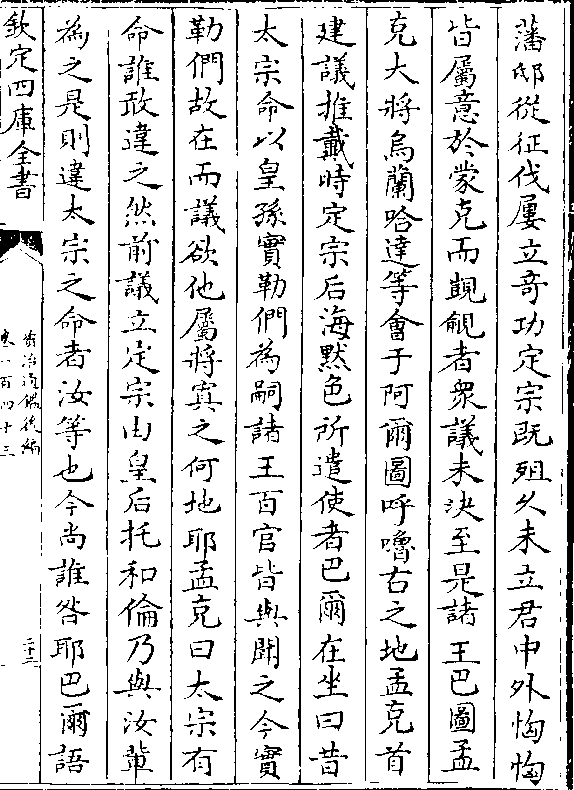 藩邸從征伐屢立竒功定宗既殂久未立君中外恟恟
皆屬意於蒙克而覬覦者衆議未決至是諸王巴圖孟
克大將烏蘭哈達等會于阿爾圖呼嚕古之地孟克首
建議推戴時定宗后海默色所遣使者巴爾在坐曰昔
太宗命以皇孫實勒們為嗣諸王百官皆與聞之今實
勒們故在而議欲他屬將寘之何地耶孟克曰太宗有
命誰敢違之然前議立定宗由皇后托和倫乃與汝輩
為之是則違太宗之命者汝等也今尚誰咎耶巴爾語
欽定四庫全書
資治通鑑後編
卷一百四十三
二十三